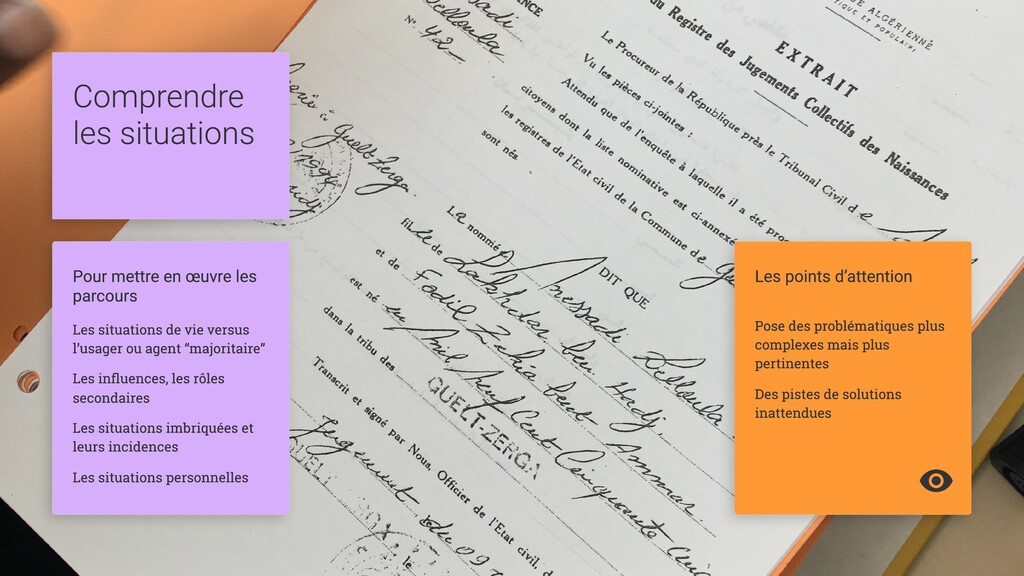 Comprendre
les situations
Pour mettre en œuvre les
parcours
Les situations de vie versus
l’usager ou agent “majoritaire”
Les influences, les rôles
secondaires
Les situations imbriquées et
leurs incidences
Les situations personnelles
Les points d’attention
Pose des problématiques plus
complexes mais plus
pertinentes
Des pistes de solutions
inattendues
ALGÉRIENNE
EXTRAIT
du Registre des Jugements Collectifs des Naissances
N° 42
Le Procureur de la République près le Tribunal Civil d
Vu les pièces ci-jointes :
Attendu que de l'enquête à laquelle il a été
citoyens dont la liste nominative est ci-annexé
les registres de l'Etat civil de la Commune de
sont nés.
DIT QUE
La nommé Messadi Delloula
fille de Lakhdar ben Hadj
et de Fadil Zohia bent Ammar
est né en Mil Neuf Cent Cinquante Cinq
dans la tribu des GUELT-ZERGA
Transcrit et signé par Nous, Officier de l'Etat civil,
Jugement du 09
le